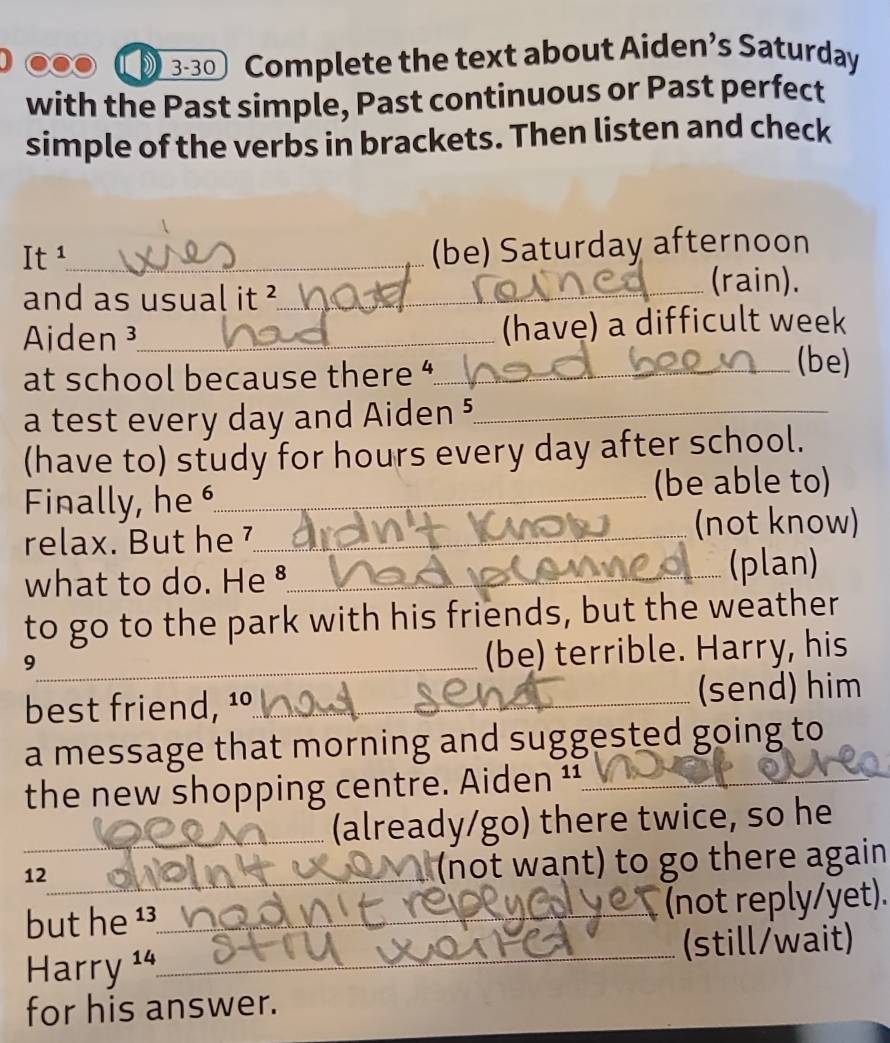 3-30 Complete the text about Aiden's Saturday
with the Past simple, Past continuous or Past perfect
simple of the verbs in brackets. Then listen and check
It ¹ (be) Saturday afternoon
and as usual it ² had rained (rain).
Aiden ³ had (have) a difficult week
at school because there ⁴ had been (be)
a test every day and Aiden ⁵
(have to) study for hours every day after school.
Finally, he ⁶ (be able to)
relax. But he ⁷ didn't know (not know)
what to do. He ⁸ had planned (plan)
to go to the park with his friends, but the weather
⁹ (be) terrible. Harry, his
best friend, ¹⁰ had send (send) him
a message that morning and suggested going to
the new shopping centre. Aiden ¹¹
been (already/go) there twice, so he
¹² didn't want (not want) to go there again
but he ¹³ hadn't repeyed yet (not reply/yet).
Harry ¹⁴ still waited (still/wait)
for his answer.